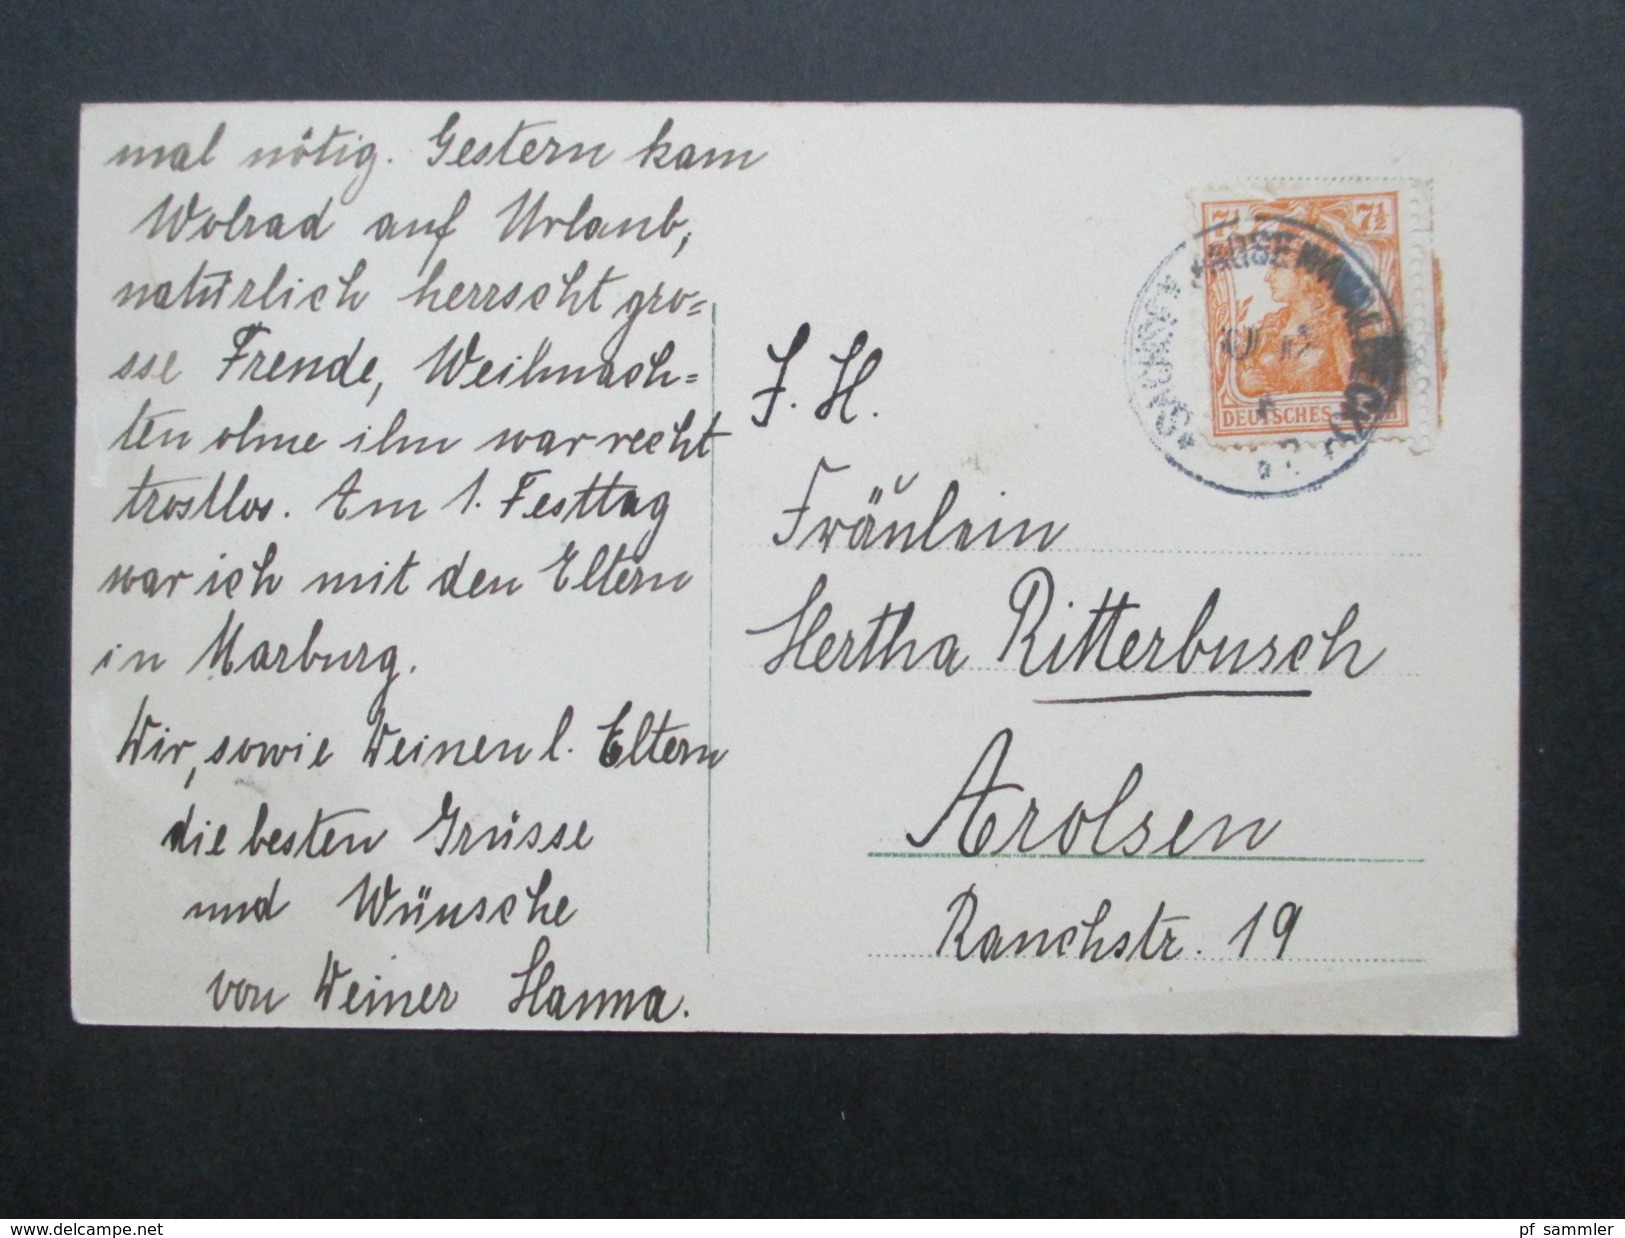 mal nötig. Gestern kam
Wolrad auf Urlaub,
natürlich herrscht gro=
sse Freude, Weihnach=
ten ohne ihn war recht
trostlos. Am 1. Festtag
war ich mit den Eltern
in Marburg.
Wir, sowie Deinen l. Eltern
die besten Grüsse
und Wünsche
von Deiner Hanna.
7½ 7½
DEUTSCHES
F. H.
Fräulein
Hertha Ritterbusch
Arolsen
Rauchstr. 19
delcampe.net
pf sammler